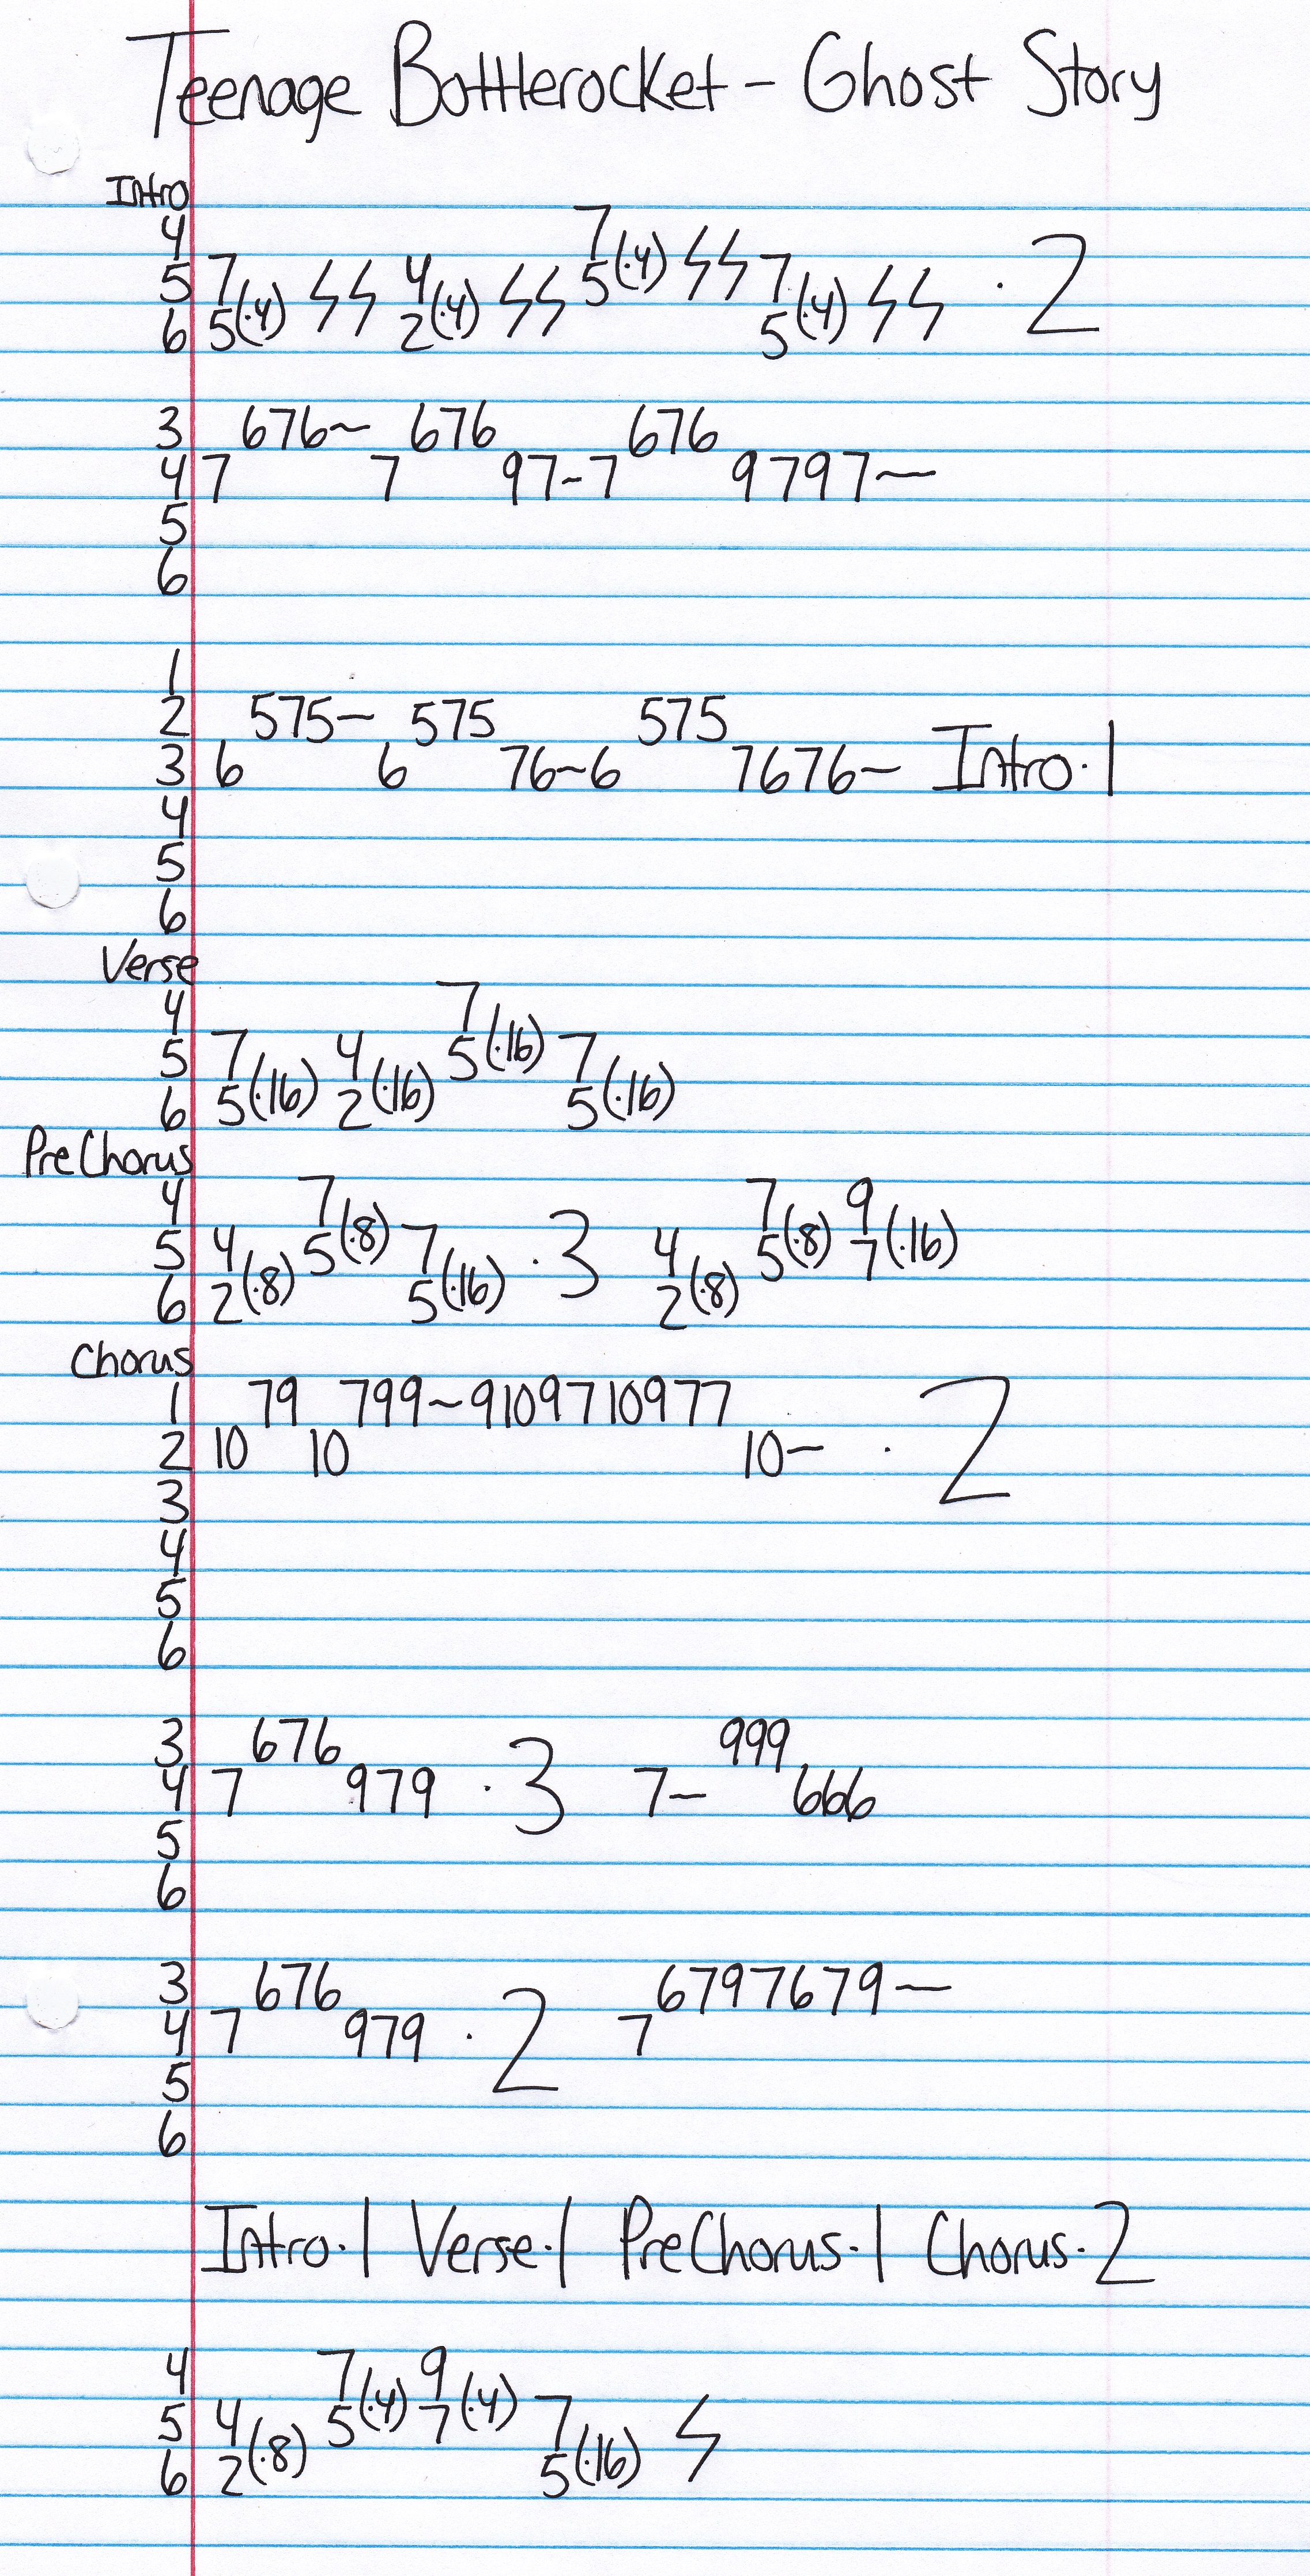 Teenage Bottlerocket - Ghost Story
Intro
4 7
5 7 4 5(·4) ϟϟ 7
6 5(·4) ϟϟ 2(·4) ϟϟ 5(·4) ϟϟ · 2
3 676~ 676 676
4 7 7 97-7 9797—
5
6
1
2 575— 575 575
3 6 6 76~6 7676~ Intro·1
4
5
6
Verse
4 7
5 7 4 5(·16) 7
6 5(·16) 2(·16) 5(·16)
PreChorus
4 7 7 9
5 4 5(·8) 7 · 3 4 5(·8) 7(·16)
6 2(·8) 5(·16) 2(·8)
Chorus
1 79 799~9109710977
2 10 10 10— · 2
3
4
5
6
3 676 999
4 7 979 · 3 7— 666
5
6
3 676 6797679—
4 7 979 · 2 7
5
6
Intro·1 Verse·1 PreChorus·1 Chorus·2
4 7 9
5 4 5(·4) 7(·4) 7
6 2(·8) 5(·16) ϟ